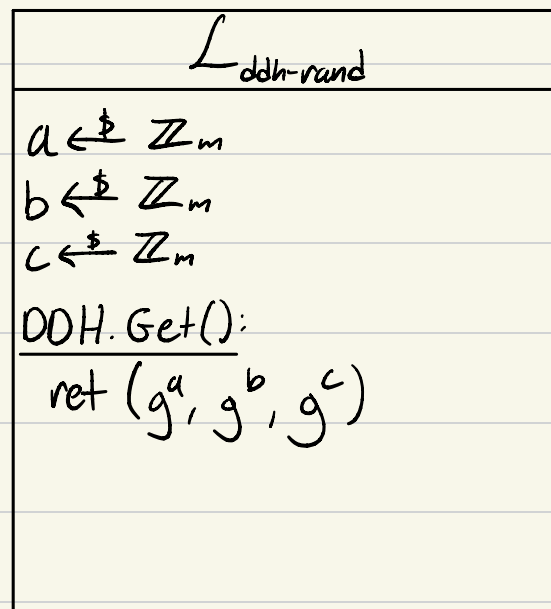 ℒ_ddh-rand
a ←$ ℤ_m
b ←$ ℤ_m
c ←$ ℤ_m
DDH.Get():
ret (g^a, g^b, g^c)